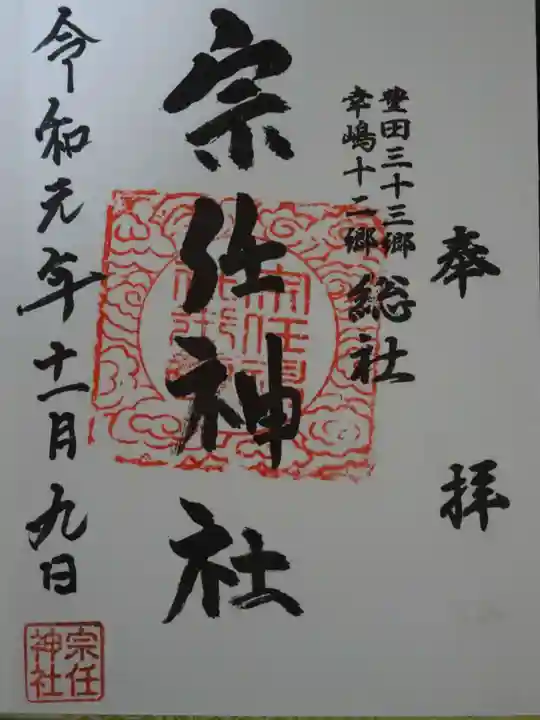 奉拝
豊田三十三郷
幸嶋十二郷
総社
宗任神社
令和元年十一月九日
宗任
神社